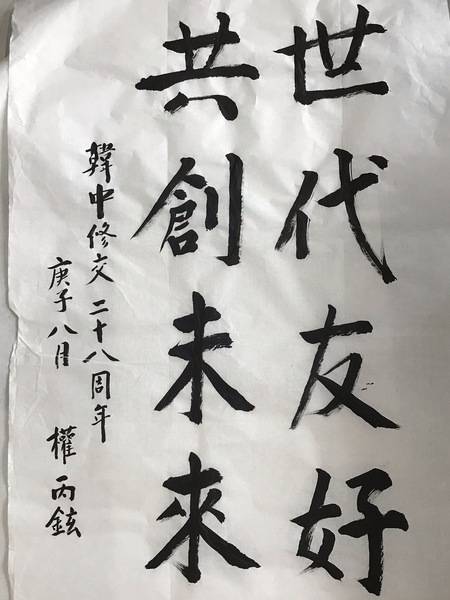 世代友好
共創未來
韓中修交二十八周年
庚子八月 權丙鉉